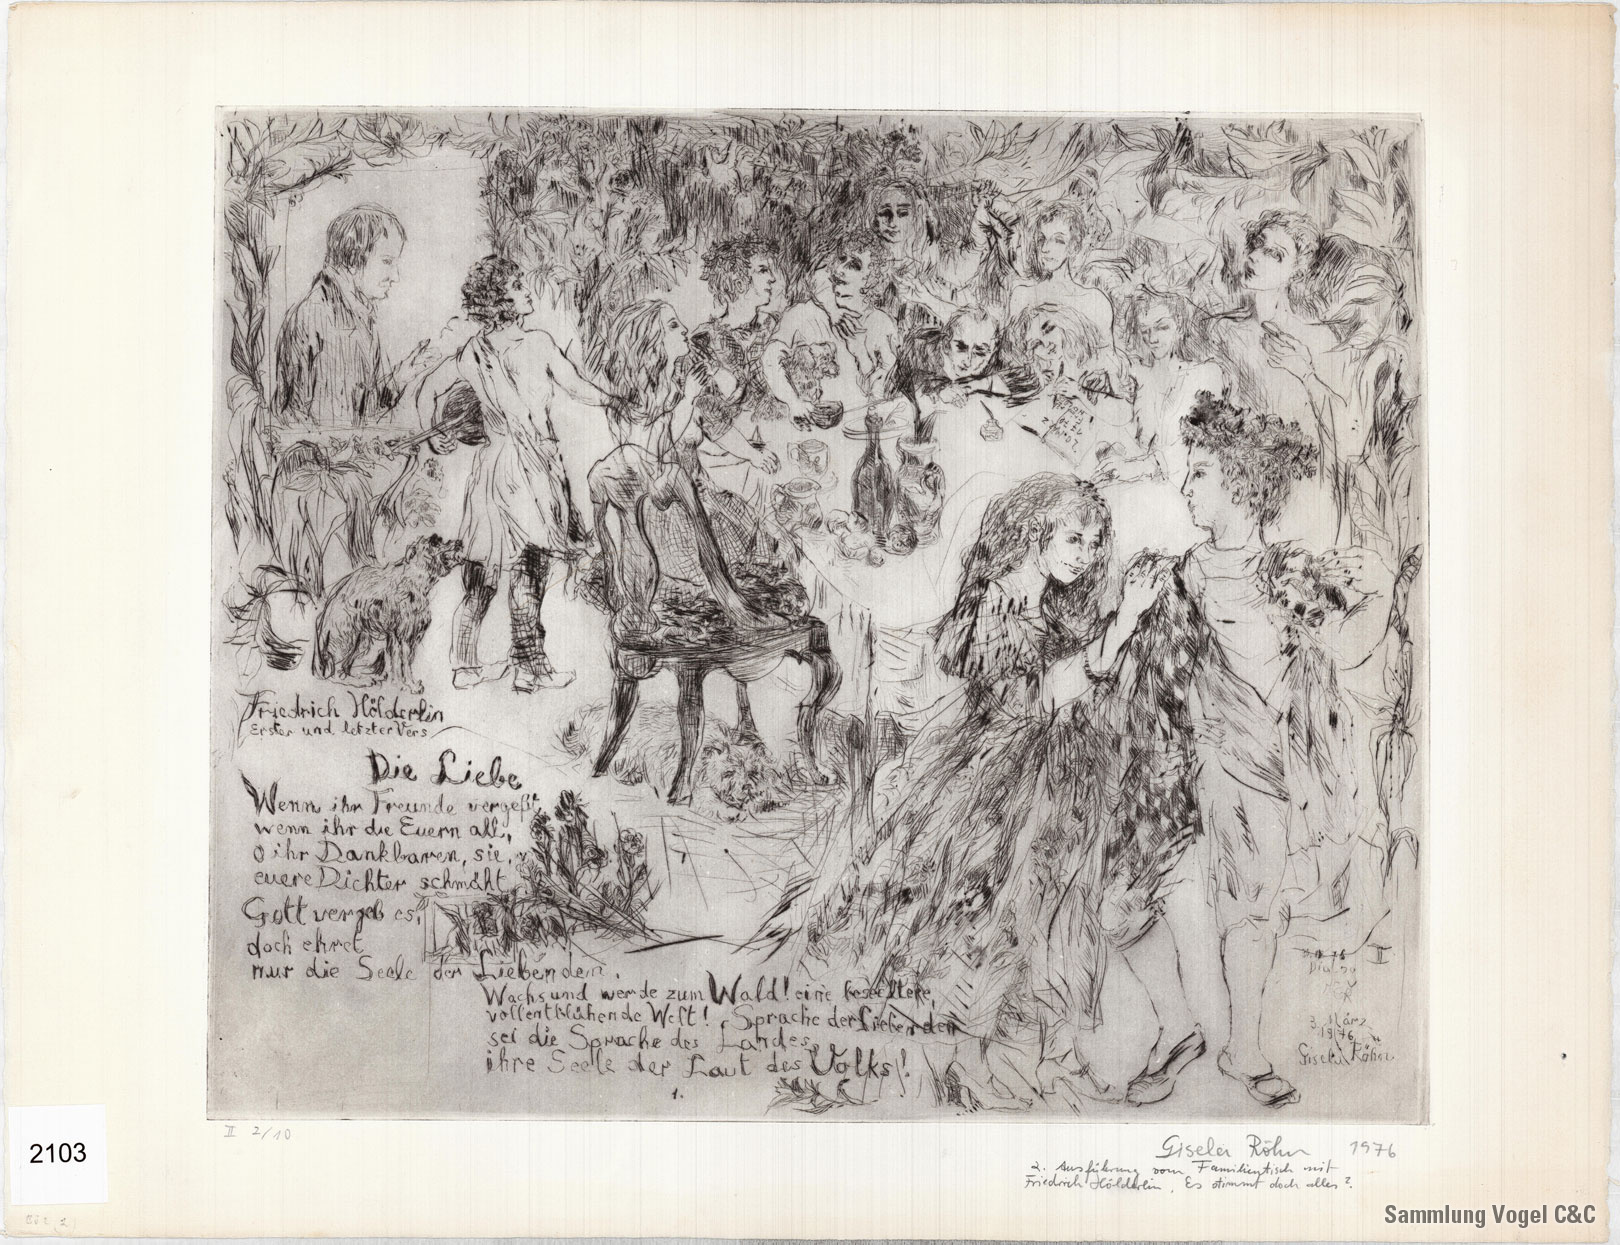 Friedrich Hölderlin
Erster und letzter Vers
Die Liebe
Wenn ihr Freunde vergeßt,
wenn ihr die Euern all,
O ihr Dankbaren, sie,
euere Dichter schmäht
Gott vergeb es,
doch ehret
nur die Seele der Liebenden.
Wachs und werde zum Wald! eine beseeltere,
vollentblühende Welt! Sprache der Liebenden
sei die Sprache des Landes,
ihre Seele der Laut des Volks!
1.
II
3. März
1976
Gisela Röhn
II 2/10
Gisela Röhn 1976
2. Ausführung vom Familientisch mit
Friedrich Hölderlin, Es stimmt doch alles?
2103
Sammlung Vogel C&C